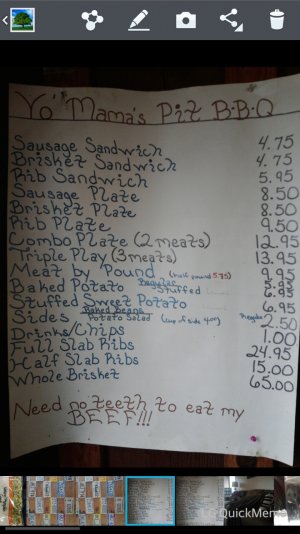 Yo' Mama's Pit B-B-Q
Sausage Sandwich 4.75
Brisket Sandwich 4.75
Rib Sandwich 5.95
Sausage Plate 8.50
Brisket Plate 8.50
Rib Plate 9.50
Combo Plate (2 meats) 12.95
Triple Play (3 meats) 13.95
Meat by Pound (half pound 5.75) 9.95
Baked Potato Regular
Stuffed 6.95
Stuffed Sweet Potato 6.95
Sides Baked Beans
Potato Salad (cup of side 4oz) Regular 2.50
Drinks/Chips 1.00
Full Slab Ribs 24.95
Half Slab Ribs 15.00
Whole Brisket 65.00
Need no teeth to eat my
BEEF!!!
QuickMemo